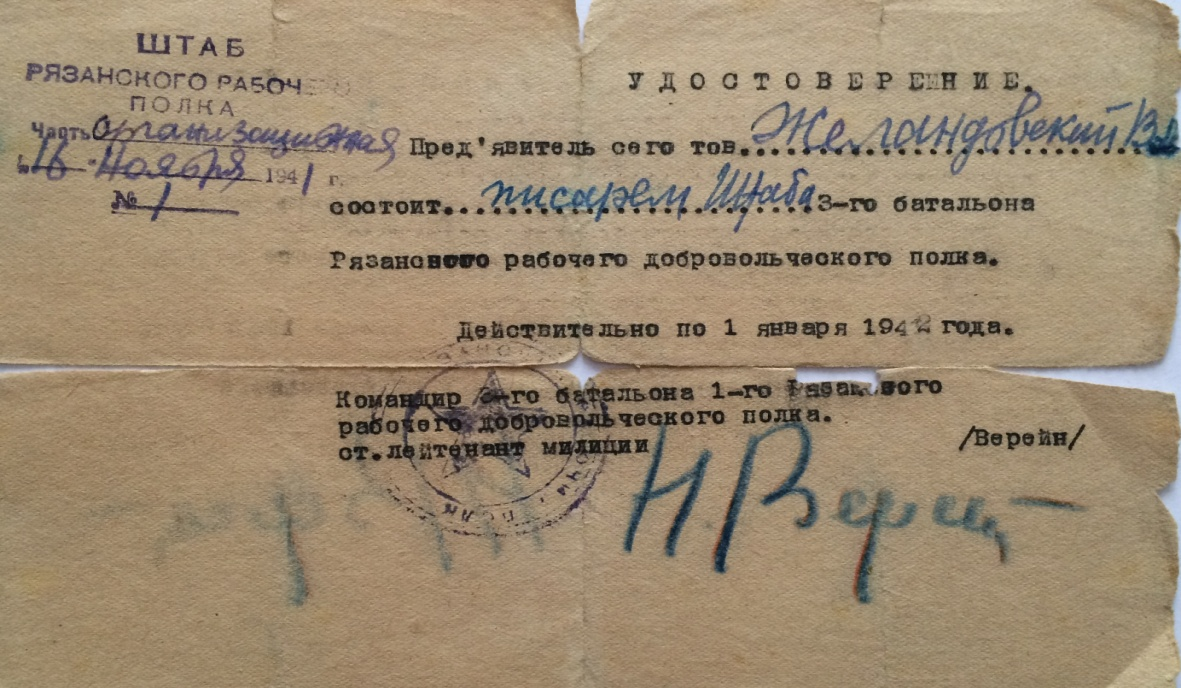 ШТАБ
РЯЗАНСКОГО РАБОЧЕГО
ПОЛКА
Часть организационная
"16" Ноября 1941 г.
№ 1
УДОСТОВЕРЕНИЕ.
Пред'явитель сего тов. Желандовский Вл
состоит писарем Штаба 3-го батальона
Рязанского рабочего добровольческого полка.
Действительно по 1 января 1942 года.
Командир 3-го батальона 1-го Рязанского
рабочего добровольческого полка.
ст.лейтенант милиции /Верейн/
Н. Верейн